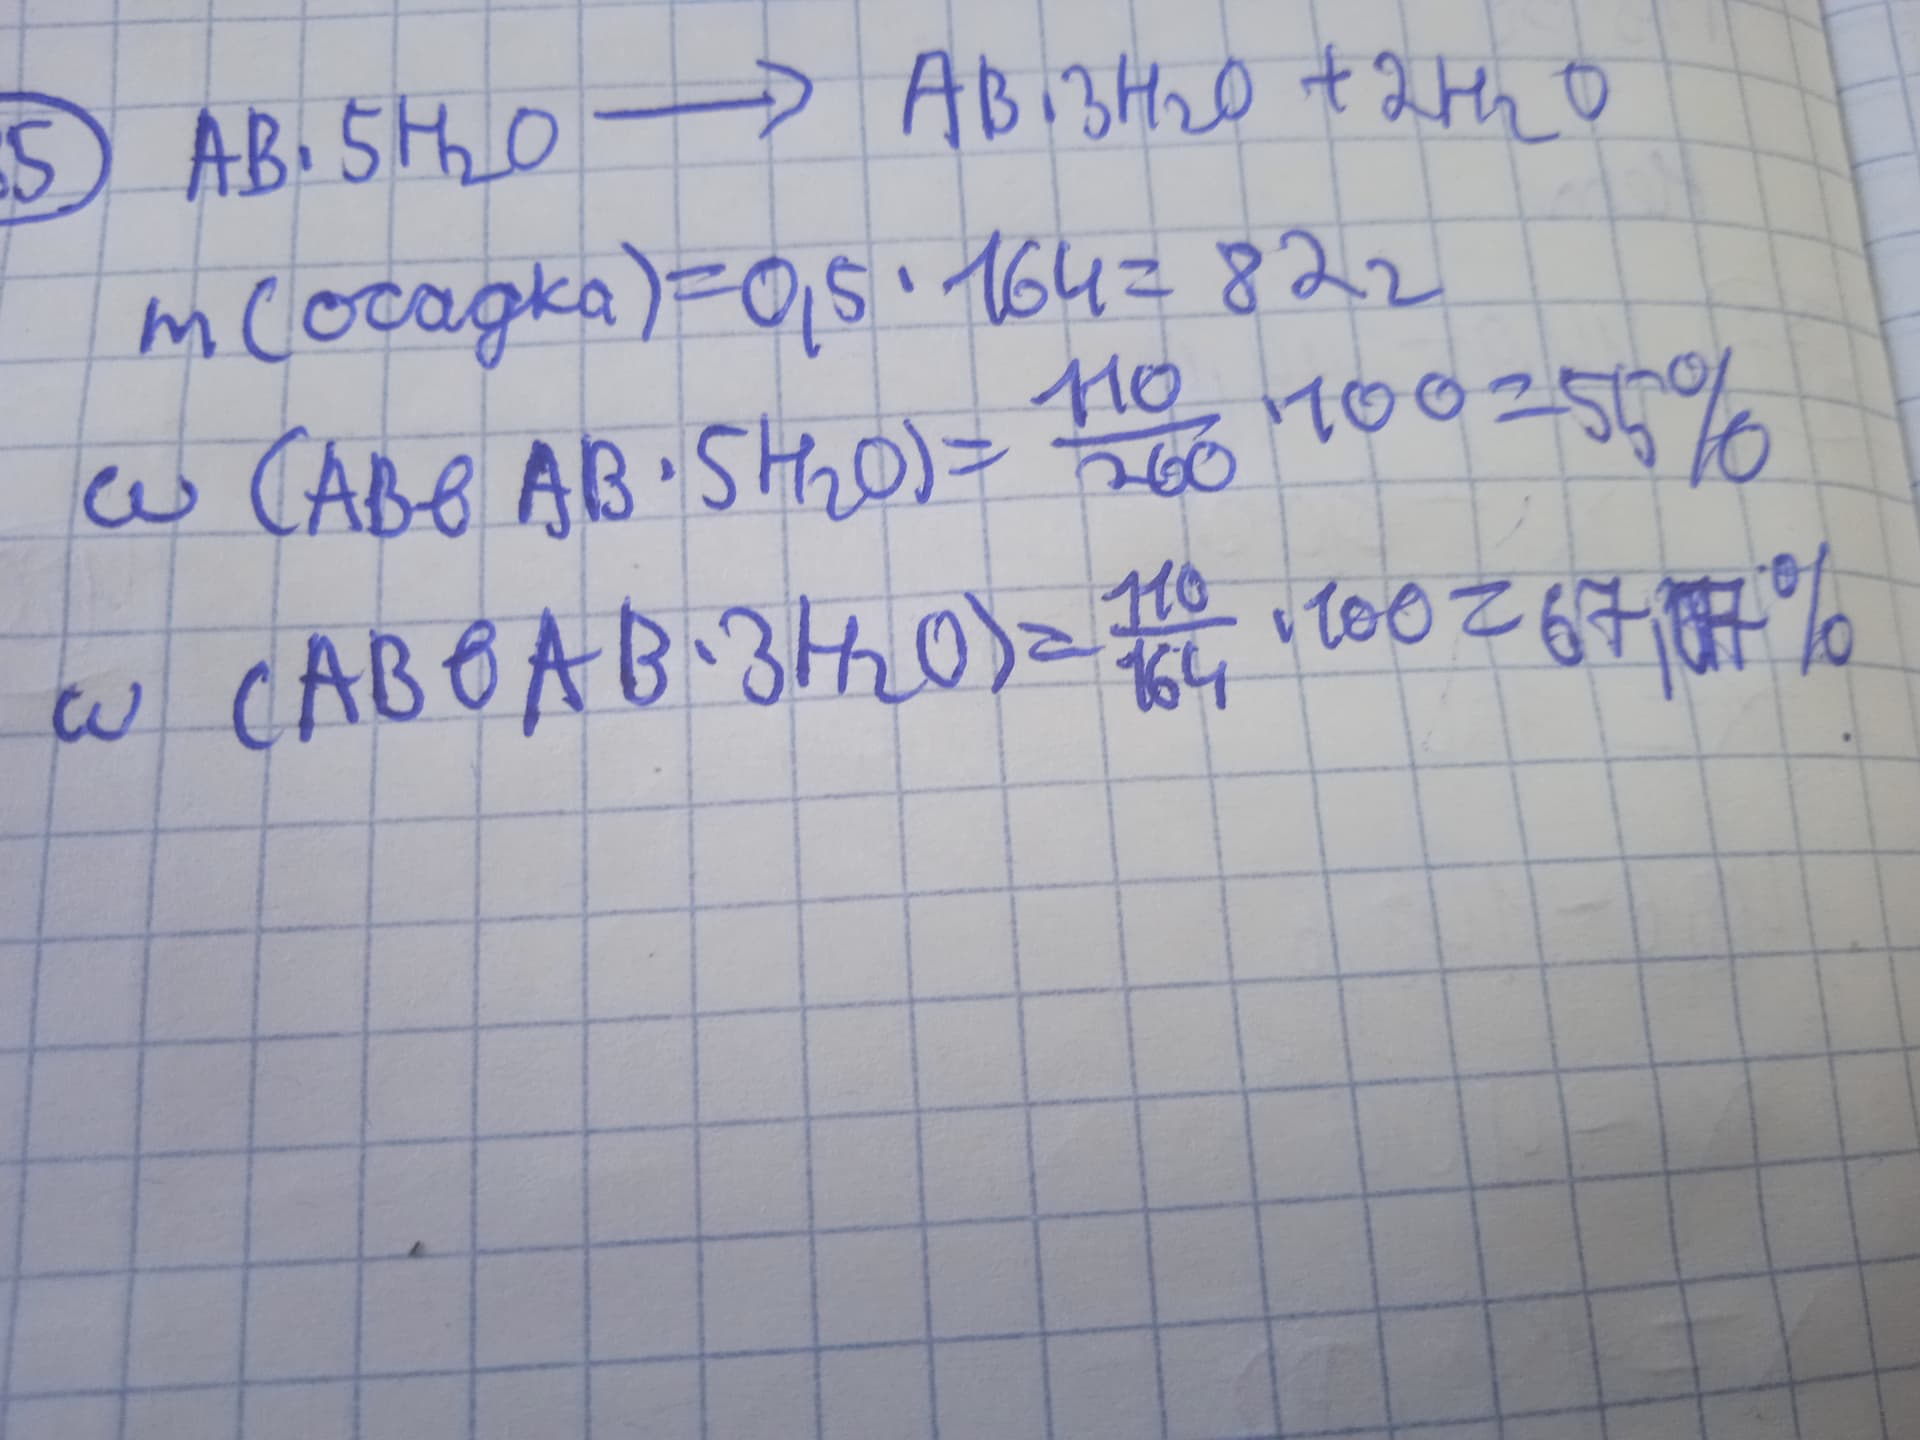 35 AB·5H₂O → AB·3H₂O + 2H₂O
m(осадка)=0,5·164=82г
ω (AB в AB·5H₂O)= 110/200 ·100=55%
ω (AB в AB·3H₂O)= 110/164 ·100=67,07%